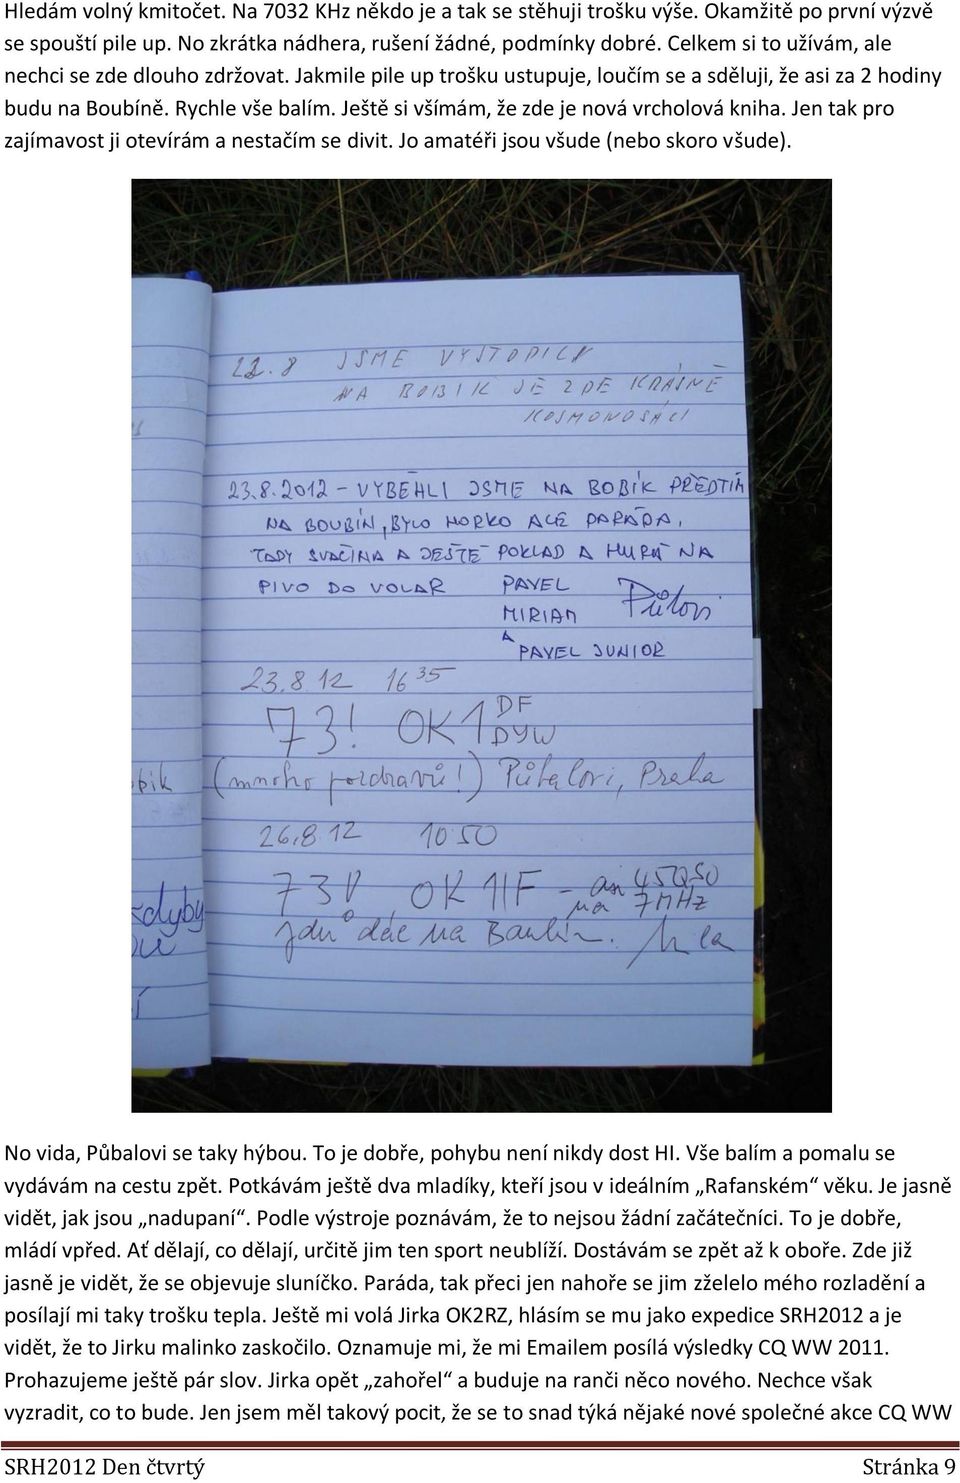 Hledám volný kmitočet. Na 7032 KHz někdo je a tak se stěhuji trošku výše. Okamžitě po první výzvě
se spouští pile up. No zkrátka nádhera, rušení žádné, podmínky dobré. Celkem si to užívám, ale
nechci se zde dlouho zdržovat. Jakmile pile up trošku ustupuje, loučím se a sděluji, že asi za 2 hodiny
budu na Boubíně. Rychle vše balím. Ještě si všímám, že zde je nová vrcholová kniha. Jen tak pro
zajímavost ji otevírám a nestačím se divit. Jo amatéři jsou všude (nebo skoro všude).
22.8 JSME VYSTOPILY
NA BOBIK JE ZDE KRÁSNĚ
KOSMONOSÁCI
23.8.2012 - VYBĚHLI JSME NA BOBÍK PŘEDTÍM
NA BOUBÍN, BYLO HORKO ALE PARÁDA,
TADY SVAČINA A JEŠTĚ POKLAD A HURÁ NA
PIVO DO VOLAR PAVEL
MIRIAM
A
PAVEL JUNIOR
23.8.12 16 35
73! OK1 DF
DYW
pik (mnoho pozdravů!) Půbalovi, Praha
26.8.12 10 50
73 OK1IF - asi 45QSO
na 7MHz
kdyby jdu dál na Boubín.
No vida, Půbalovi se taky hýbou. To je dobře, pohybu není nikdy dost HI. Vše balím a pomalu se
vydávám na cestu zpět. Potkávám ještě dva mladíky, kteří jsou v ideálním „Rafanském“ věku. Je jasně
vidět, jak jsou „nadupaní“. Podle výstroje poznávám, že to nejsou žádní začátečníci. To je dobře,
mládí vpřed. Ať dělají, co dělají, určitě jim ten sport neublíží. Dostávám se zpět až k oboře. Zde již
jasně je vidět, že se objevuje sluníčko. Paráda, tak přeci jen nahoře se jim zželelo mého rozladění a
posílají mi taky trošku tepla. Ještě mi volá Jirka OK2RZ, hlásím se mu jako expedice SRH2012 a je
vidět, že to Jirku malinko zaskočilo. Oznamuje mi, že mi Emailem posílá výsledky CQ WW 2011.
Prohazujeme ještě pár slov. Jirka opět „zahořel“ a buduje na ranči něco nového. Nechce však
vyzradit, co to bude. Jen jsem měl takový pocit, že se to snad týká nějaké nové společné akce CQ WW
SRH2012 Den čtvrtý Stránka 9